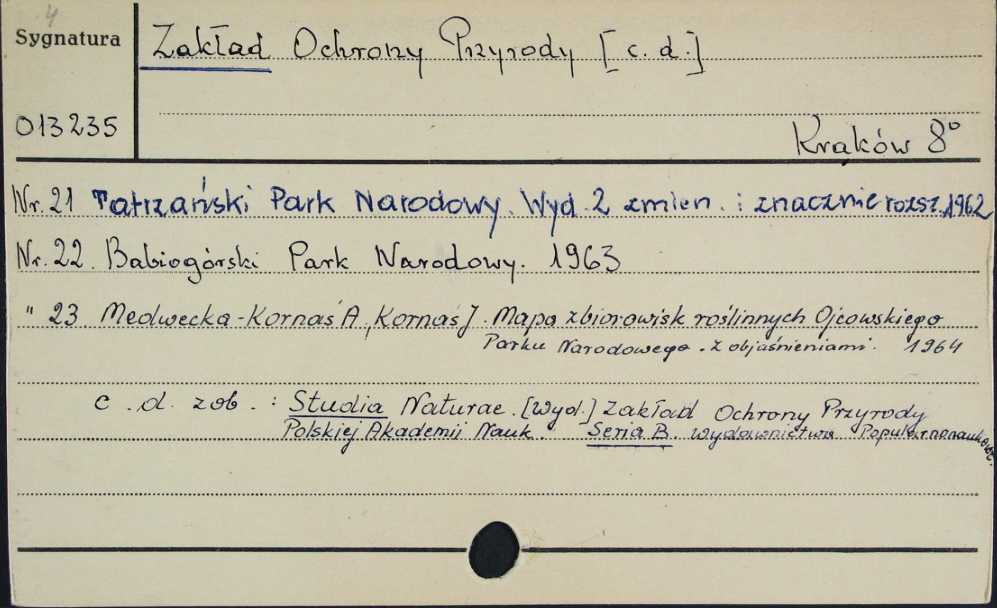 4
Sygnatura
Zakład Ochrony Przyrody [c.d.]
013235
Kraków 8°
Nr. 21 Tatrzański Park Narodowy. Wyd. 2 zmien. i znacznie rozsz. 1962
Nr. 22. Babiogórski Park Narodowy. 1963
" 23 Medwecka-Kornaś A., Kornaś J. Mapa zbiorowisk roślinnych Ojcowskiego
Parku Narodowego. Z objaśnieniami. 1964
c.d. zob. : Studia Naturae. [Wyd.] Zakład Ochrony Przyrody
Polskiej Akademii Nauk. Seria B. Wydawnictwa Popularnonaukowe.